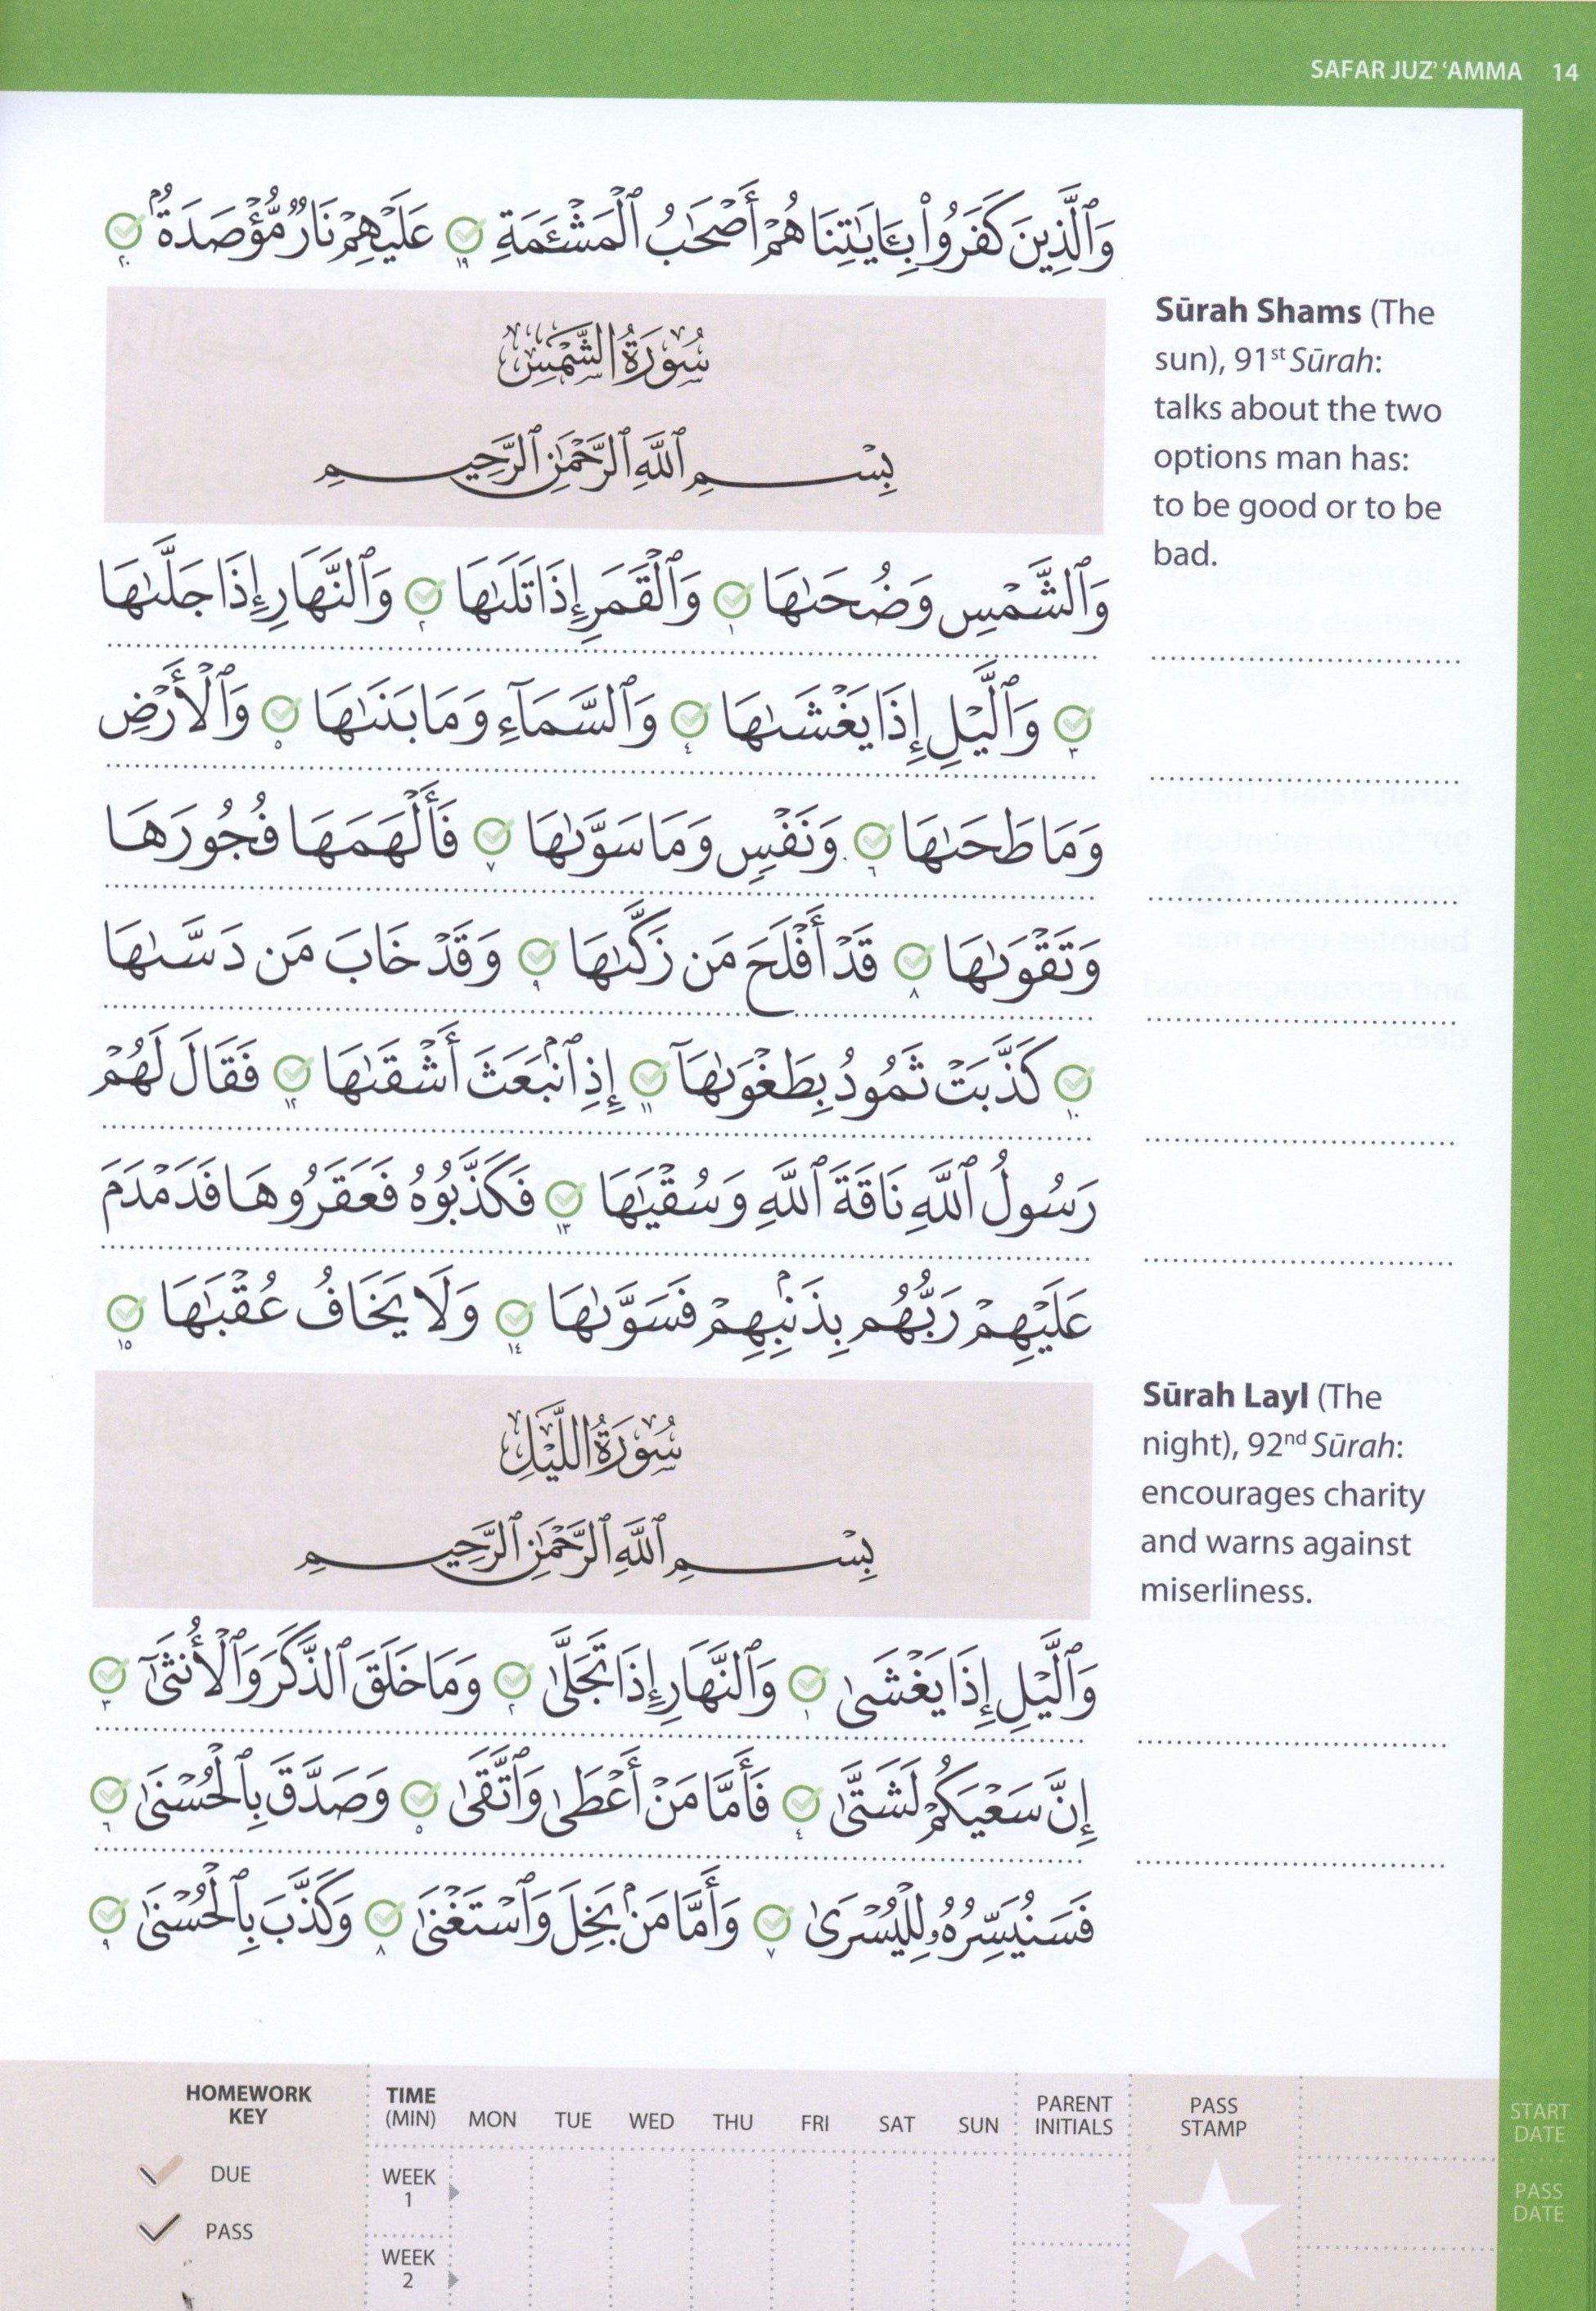 SAFAR JUZ’ ‘AMMA 14
وَٱلَّذِينَ كَفَرُوا۟ بِـَٔايَـٰتِنَا هُمْ أَصْحَـٰبُ ٱلْمَشْـَٔمَةِ ١٩ عَلَيْهِمْ نَارٌ مُّؤْصَدَةٌۢ ٢٠
سُورَةُ الشَّمْسِ
بِسْمِ ٱللَّهِ ٱلرَّحْمَـٰنِ ٱلرَّحِيمِ
Sūrah Shams (The
sun), 91st Sūrah:
talks about the two
options man has:
to be good or to be
bad.
وَٱلشَّمْسِ وَضُحَىٰهَا ١ وَٱلْقَمَرِ إِذَا تَلَىٰهَا ٢ وَٱلنَّهَارِ إِذَا جَلَّىٰهَا
٣ وَٱلَّيْلِ إِذَا يَغْشَىٰهَا ٤ وَٱلسَّمَآءِ وَمَا بَنَىٰهَا ٥ وَٱلْأَرْضِ
وَمَا طَحَىٰهَا ٦ وَنَفْسٍ وَمَا سَوَّىٰهَا ٧ فَأَلْهَمَهَا فُجُورَهَا
وَتَقْوَىٰهَا ٨ قَدْ أَفْلَحَ مَن زَكَّىٰهَا ٩ وَقَدْ خَابَ مَن دَسَّىٰهَا
١٠ كَذَّبَتْ ثَمُودُ بِطَغْوَىٰهَآ ١١ إِذِ ٱنۢبَعَثَ أَشْقَىٰهَا ١٢ فَقَالَ لَهُمْ
رَسُولُ ٱللَّهِ نَاقَةَ ٱللَّهِ وَسُقْيَـٰهَا ١٣ فَكَذَّبُوهُ فَعَقَرُوهَا فَدَمْدَمَ
عَلَيْهِمْ رَبُّهُم بِذَنۢبِهِمْ فَسَوَّىٰهَا ١٤ وَلَا يَخَافُ عُقْبَـٰهَا ١٥
سُورَةُ اللَّيْلِ
بِسْمِ ٱللَّهِ ٱلرَّحْمَـٰنِ ٱلرَّحِيمِ
Sūrah Layl (The
night), 92nd Sūrah:
encourages charity
and warns against
miserliness.
وَٱلَّيْلِ إِذَا يَغْشَىٰ ١ وَٱلنَّهَارِ إِذَا تَجَلَّىٰ ٢ وَمَا خَلَقَ ٱلذَّكَرَ وَٱلْأُنثَىٰٓ ٣
إِنَّ سَعْيَكُمْ لَشَتَّىٰ ٤ فَأَمَّا مَنْ أَعْطَىٰ وَٱتَّقَىٰ ٥ وَصَدَّقَ بِٱلْحُسْنَىٰ ٦
فَسَنُيَسِّرُهُۥ لِلْيُسْرَىٰ ٧ وَأَمَّا مَنۢ بَخِلَ وَٱسْتَغْنَىٰ ٨ وَكَذَّبَ بِٱلْحُسْنَىٰ ٩
HOMEWORK
KEY
DUE
PASS
TIME
(MIN) MON TUE WED THU FRI SAT SUN
PARENT
INITIALS
PASS
STAMP
START
DATE
PASS
DATE
WEEK
1
WEEK
2